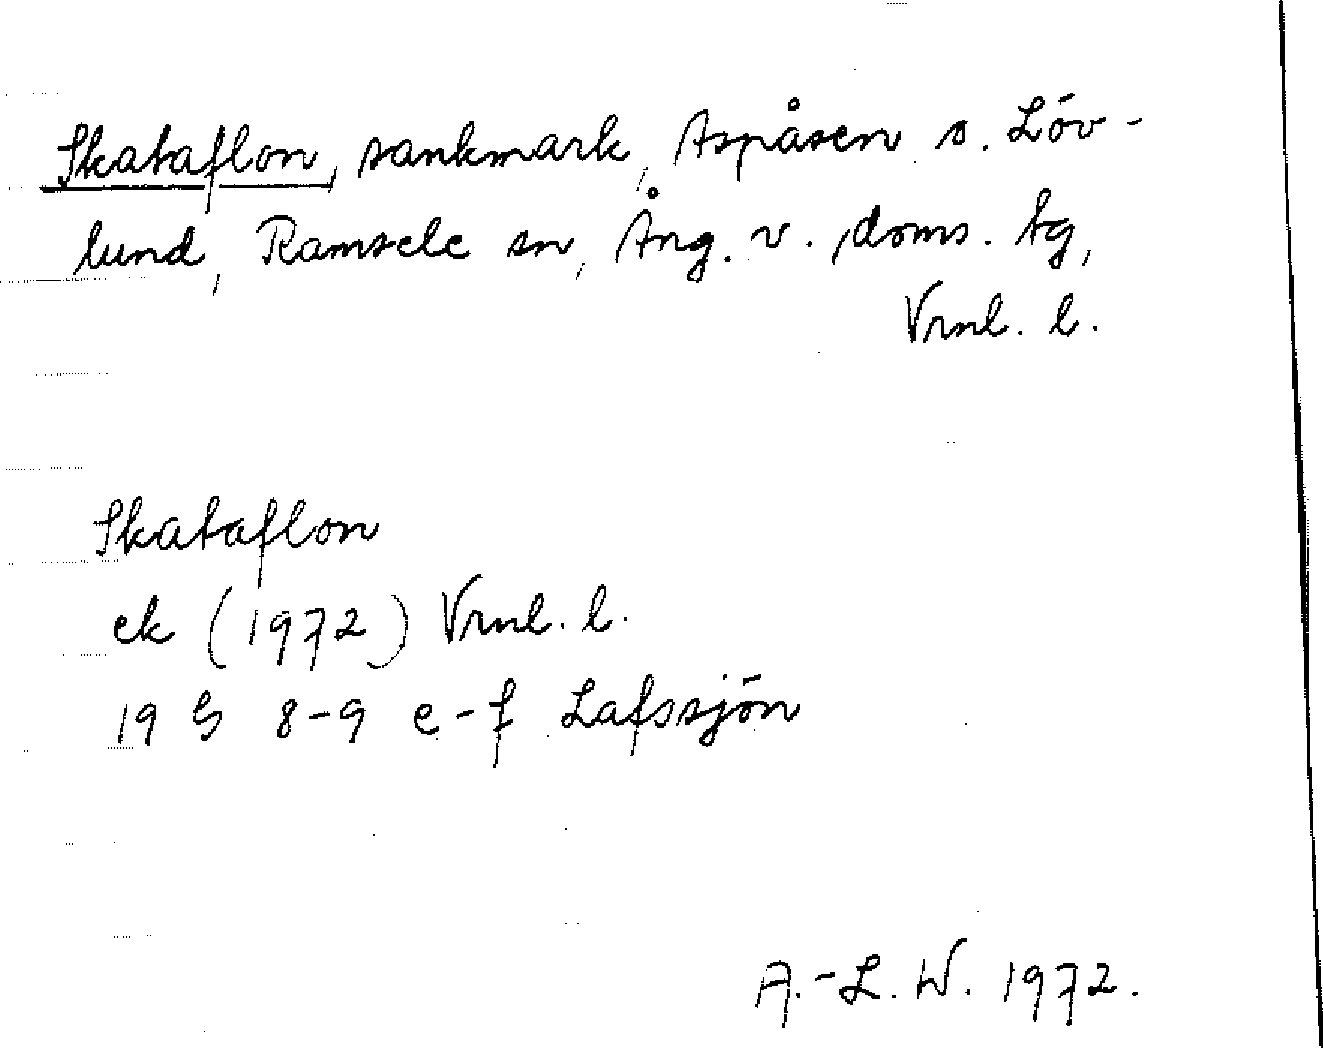 Skataflon, sankmark, Aspåsen o. Löv-
lund, Ramsele sn, Ång. v. doms. tg,
Vrnl. l.
Skataflon
ek (1972) Vrnl. l.
19 G 8-9 e-f Lafssjön
A.-L. W. 1972.